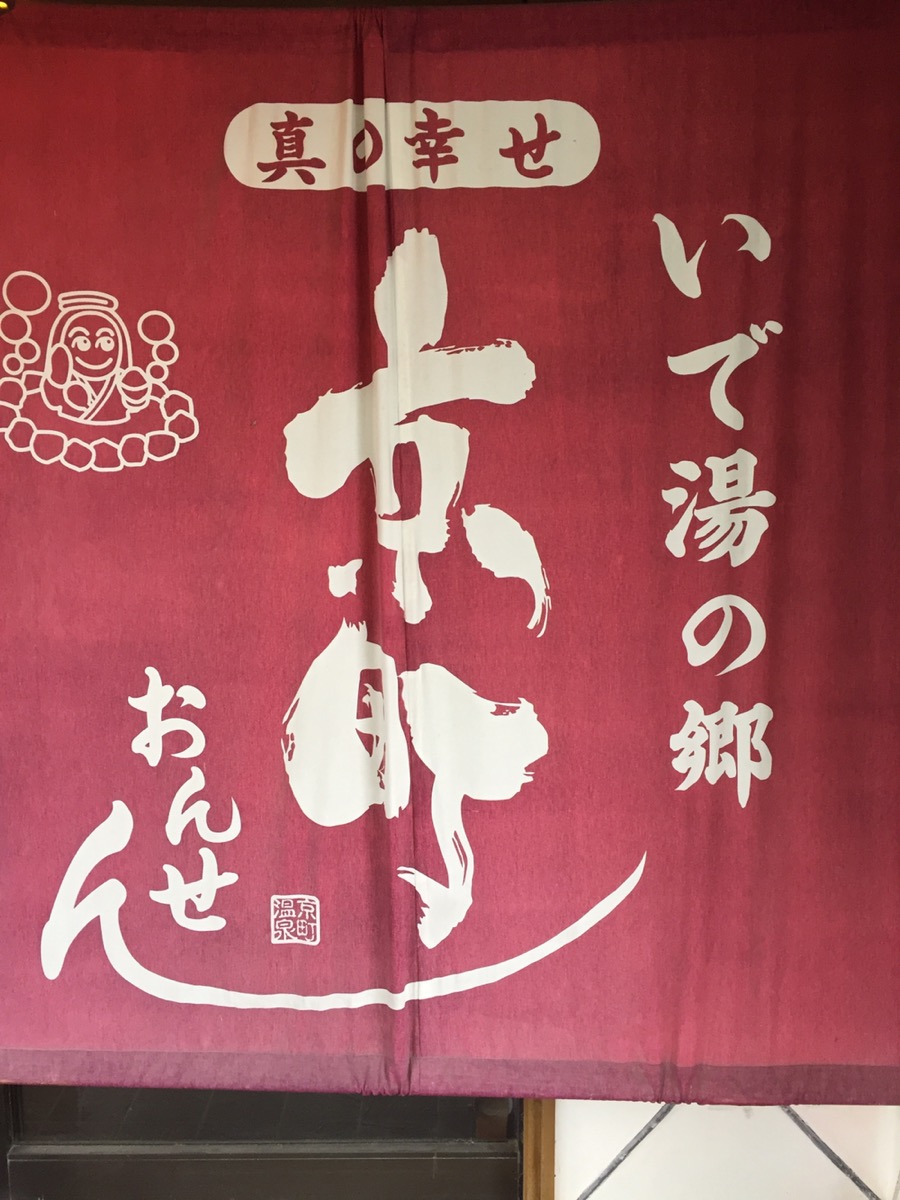 真の幸せ
いで湯の郷
京町
おんせん
京町
温泉